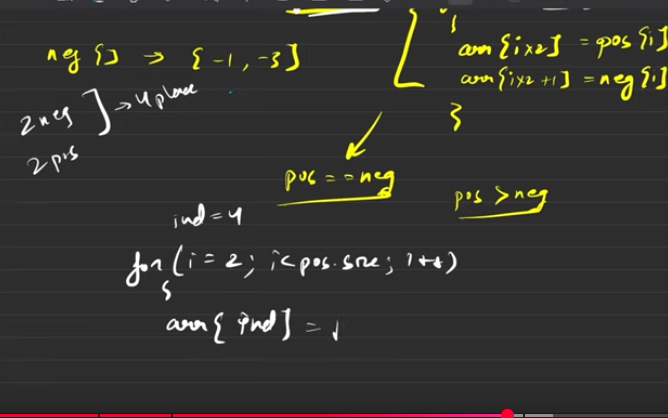 neg[] → {-1, -3]
2neg ] → 4 place
2pos
{
arr[i×2] = pos[i]
arr[i×2+1] = neg[i]
}
pos == neg
pos > neg
ind = 4
for (i = 2; i < pos.size; i++)
{
arr[ind] =